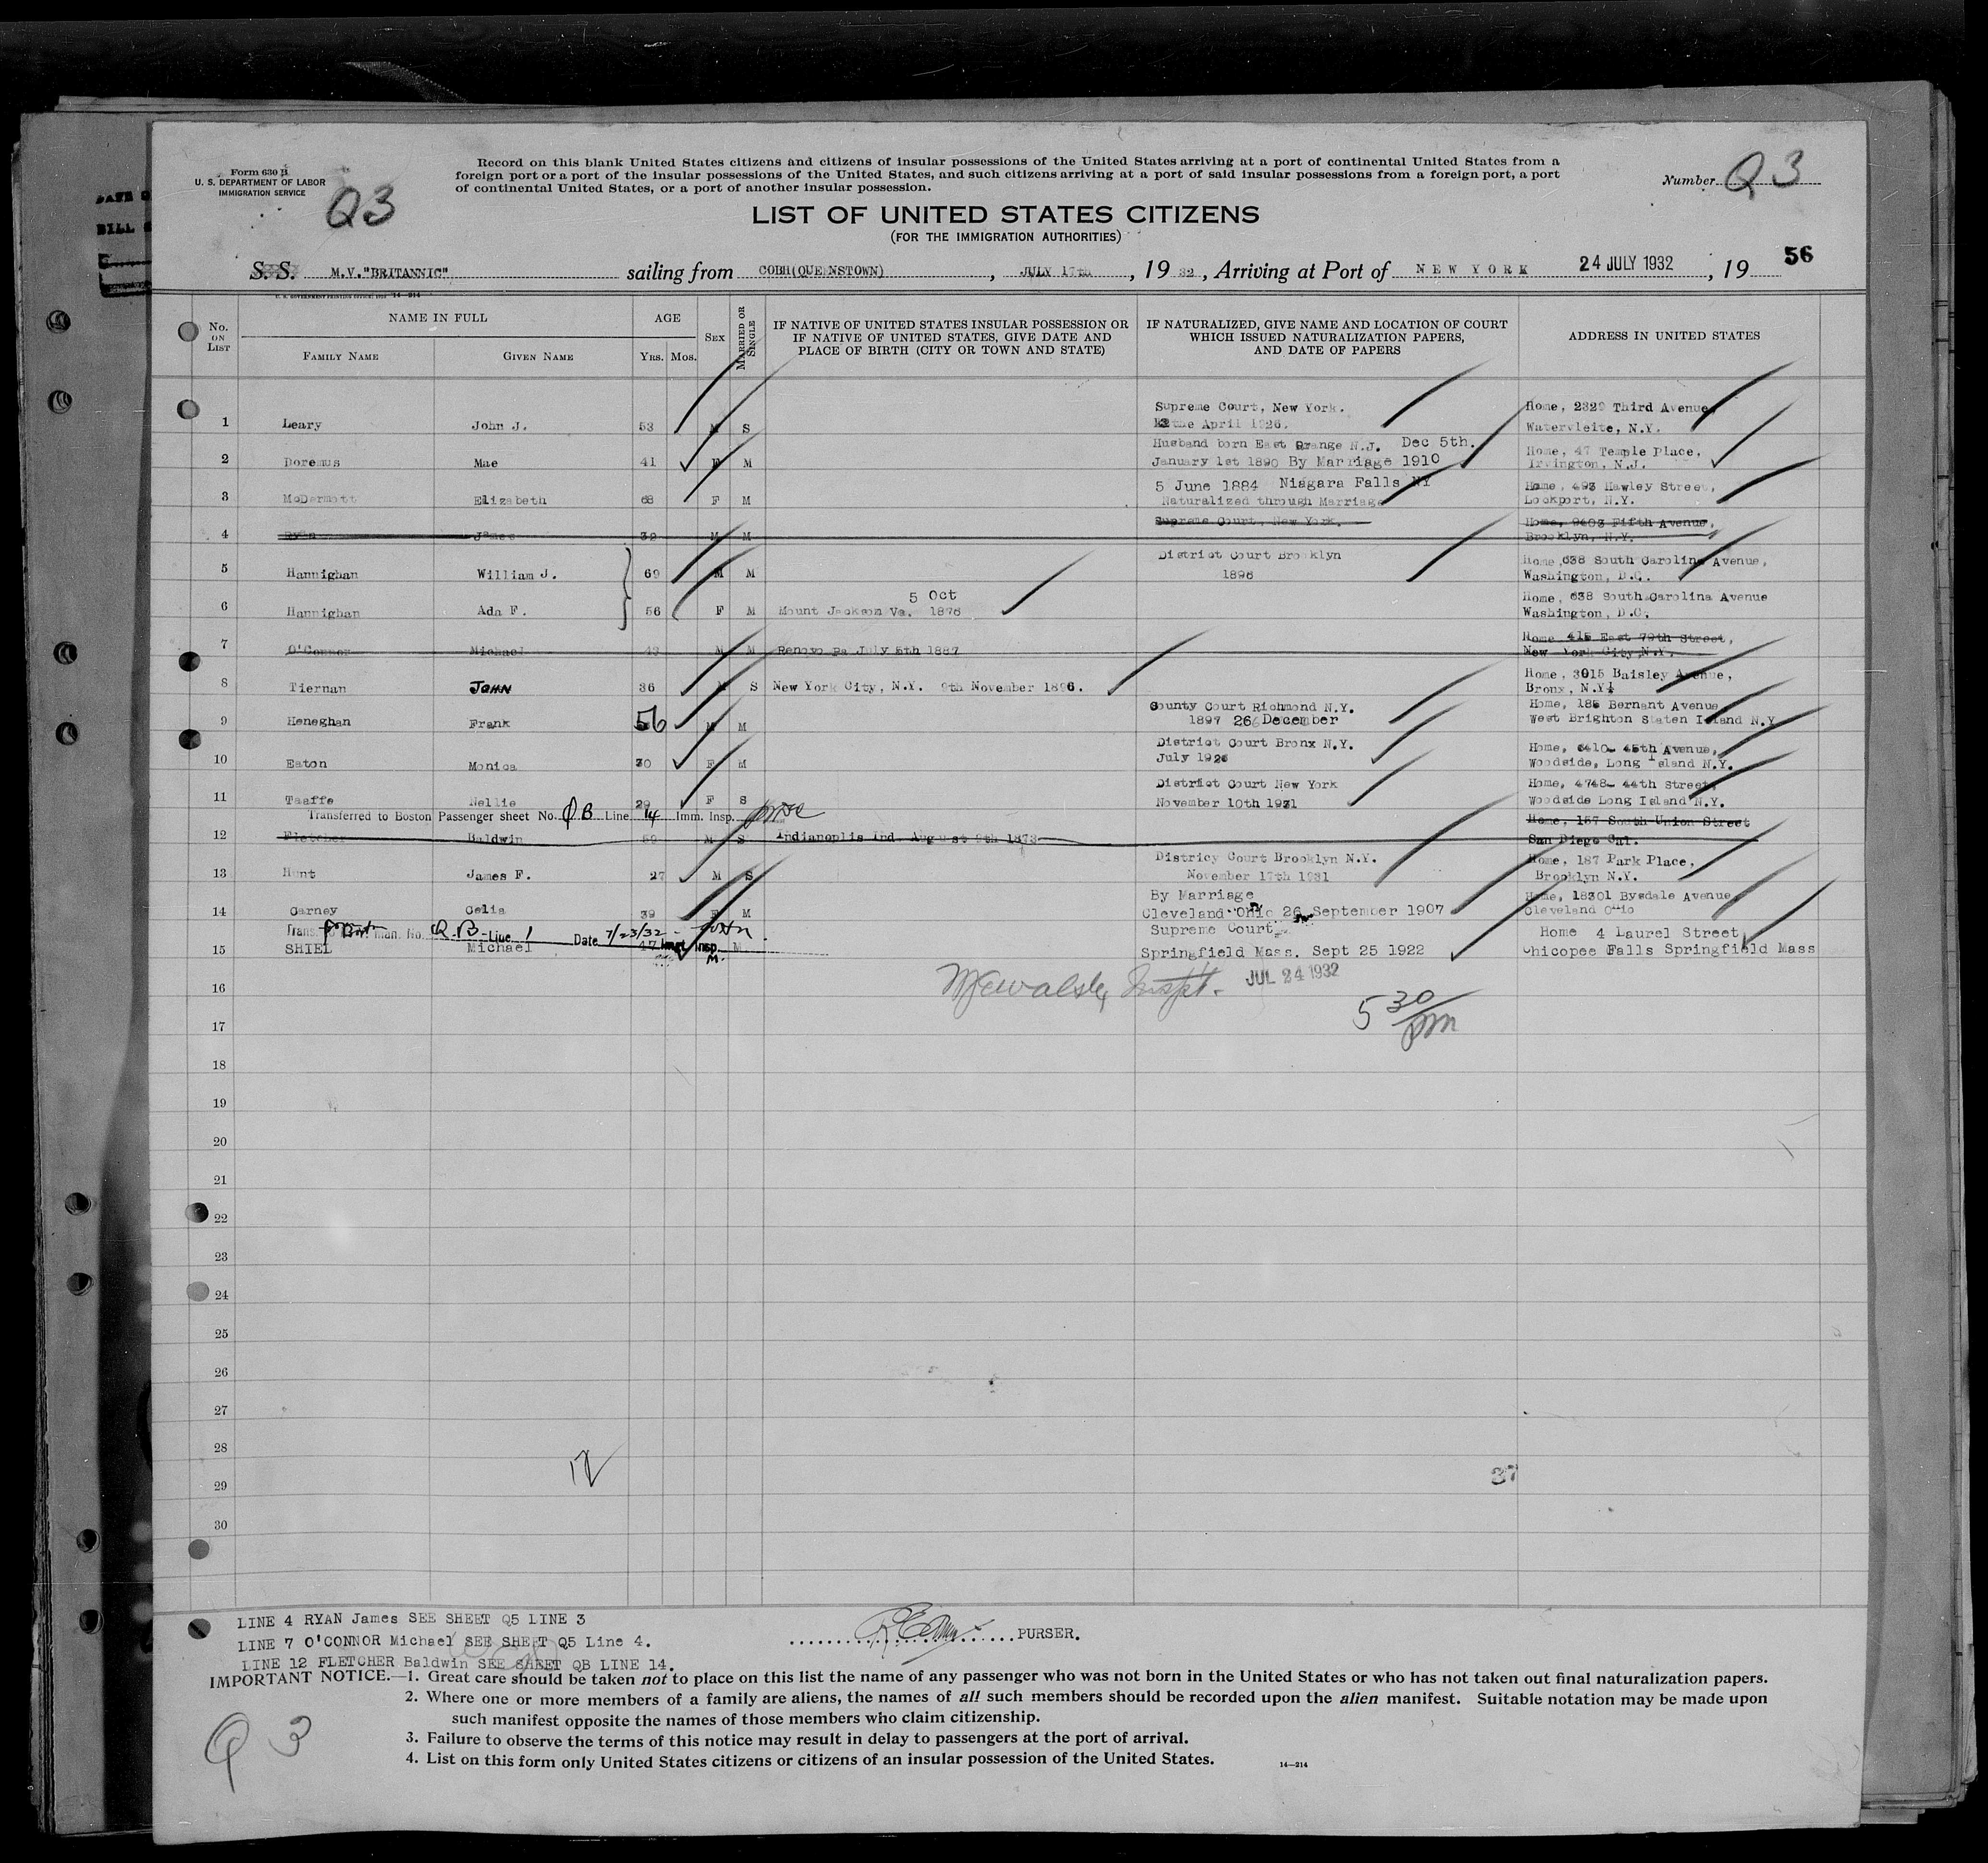 Form 630 B
U. S. DEPARTMENT OF LABOR
IMMIGRATION SERVICE
Q3
Record on this blank United States citizens and citizens of insular possessions of the United States arriving at a port of continental United States from a
foreign port or a port of the insular possessions of the United States, and such citizens arriving at a port of said insular possessions from a foreign port, a port
of continental United States, or a port of another insular possession.
Number Q 3
LIST OF UNITED STATES CITIZENS
(FOR THE IMMIGRATION AUTHORITIES)
S. S. M.V."BRITANNIC" sailing from COBH(QUEENSTOWN), JULY 17th, 19 32, Arriving at Port of NEW YORK 24 JULY 1932, 19 56
No. ON LIST NAME IN FULL AGE SEX MARRIED OR SINGLE IF NATIVE OF UNITED STATES INSULAR POSSESSION OR IF NATIVE OF UNITED STATES, GIVE DATE AND PLACE OF BIRTH (CITY OR TOWN AND STATE) IF NATURALIZED, GIVE NAME AND LOCATION OF COURT WHICH ISSUED NATURALIZATION PAPERS, AND DATE OF PAPERS ADDRESS IN UNITED STATES
FAMILY NAME GIVEN NAME YRS. MOS.
Supreme Court, New York. Home, 2329 Third Avenue,
1 Leary John J. 53 M S April 1926. Watervleite, N.Y.
Husband born East Orange N.J. Dec 5th. Home, 47 Temple Place,
2 Doremus Mae 41 F M January 1st 1890 By Marriage 1910 Irvington, N.J.
5 June 1884 Niagara Falls NY Home, 493 Hawley Street,
3 McDermott Elizabeth 68 F M Naturalized through Marriage Lockport, N.Y.
Supreme Court, New York. Home, 9403 Fifth Avenue,
4 Ryan James 32 M M Brooklyn, N.Y.
District Court Brooklyn Home 638 South Carolina Avenue,
5 Hannighan William J. 69 M M 1896 Washington, D.C.
5 Oct Home, 638 South Carolina Avenue
6 Hannighan Ada F. 56 F M Mount Jackson Va. 1876 Washington, D.C.
Home 415 East 79th Street,
7 O'Connor Michael 43 M M Renovo Pa July 5th 1887 New York City, N.Y.
Home, 3015 Baisley Avenue,
8 Tiernan JOHN 36 M S New York City, N.Y. 9th November 1896. Bronx, N.Y.
County Court Richmond N.Y. Home, 185 Bernant Avenue,
9 Heneghan Frank 56 M M 1897 26 December West Brighton Staten Island N.Y
District Court Bronx N.Y. Home, 6410- 45th Avenue,
10 Eaton Monica 30 F M July 1926 Woodside, Long Island N.Y.
District Court New York Home, 4748- 44th Street,
11 Taaffe Nellie 29 F S November 10th 1931 Woodside Long Island N.Y.
Transferred to Boston Passenger sheet No. QB Line 14 Imm. Insp. Home, 157 South Union Street
12 Fletcher Baldwin 59 M S Indianoplis Ind. August 9th 1873 San Diego Cal.
Districy Court Brooklyn N.Y. Home, 187 Park Place,
13 Hunt James F. 27 M S November 17th 1931 Brooklyn N.Y.
By Marriage Home, 18301 Byedale Avenue,
14 Carney Celia 39 F M Cleveland Ohio 26 September 1907 Cleveland Ohio
Trans. man. No. Q.B. Line 1 Date 7/23/32 Supreme Court Home 4 Laurel Street
15 SHIEL Michael 47 Imgt. Insp. M. M Springfield Mass. Sept 25 1922 Chicopee Falls Springfield Mass
16 Inspt. JUL 24 1932
5 30/pm
17
18
19
20
21
22
23
24
25
26
27
28
12
37
29
30
LINE 4 RYAN James SEE SHEET Q5 LINE 3
LINE 7 O'CONNOR Michael SEE SHEET Q5 Line 4.
PURSER.
LINE 12 FLETCHER Baldwin SEE SHEET QB LINE 14.
IMPORTANT NOTICE.—1. Great care should be taken not to place on this list the name of any passenger who was not born in the United States or who has not taken out final naturalization papers.
2. Where one or more members of a family are aliens, the names of all such members should be recorded upon the alien manifest. Suitable notation may be made upon
such manifest opposite the names of those members who claim citizenship.
3. Failure to observe the terms of this notice may result in delay to passengers at the port of arrival.
4. List on this form only United States citizens or citizens of an insular possession of the United States.
14—214
Q 3